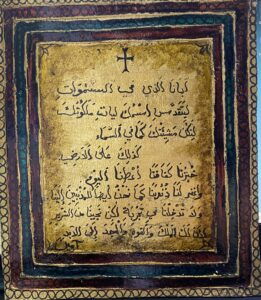 ابانا الذي في السموات
ليتقدس اسمك ليات ملكوتك
لتكن مشيئتك كما في السماء
كذلك على الارض
خبزنا كفافنا أعطنا اليوم
واغفر لنا ذنوبنا كما نحن أيضا للمذنبين إلينا
ولا تدخلنا في تجربة لكن نجينا من الشرير
لأن لك الملك والقوة والمجد إلى الأبد
آمين